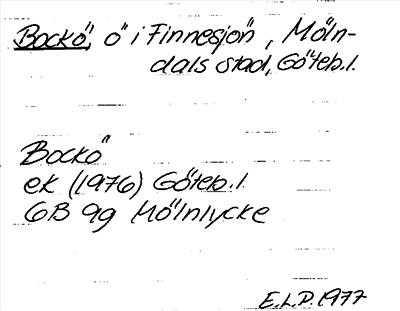 Bockö, ö i Finnesjön, Möln-
dals stad, Göteb.l.
Bockö
ek (1976) Göteb.l.
6B 9g Mölnlycke
E.L.P. 1977